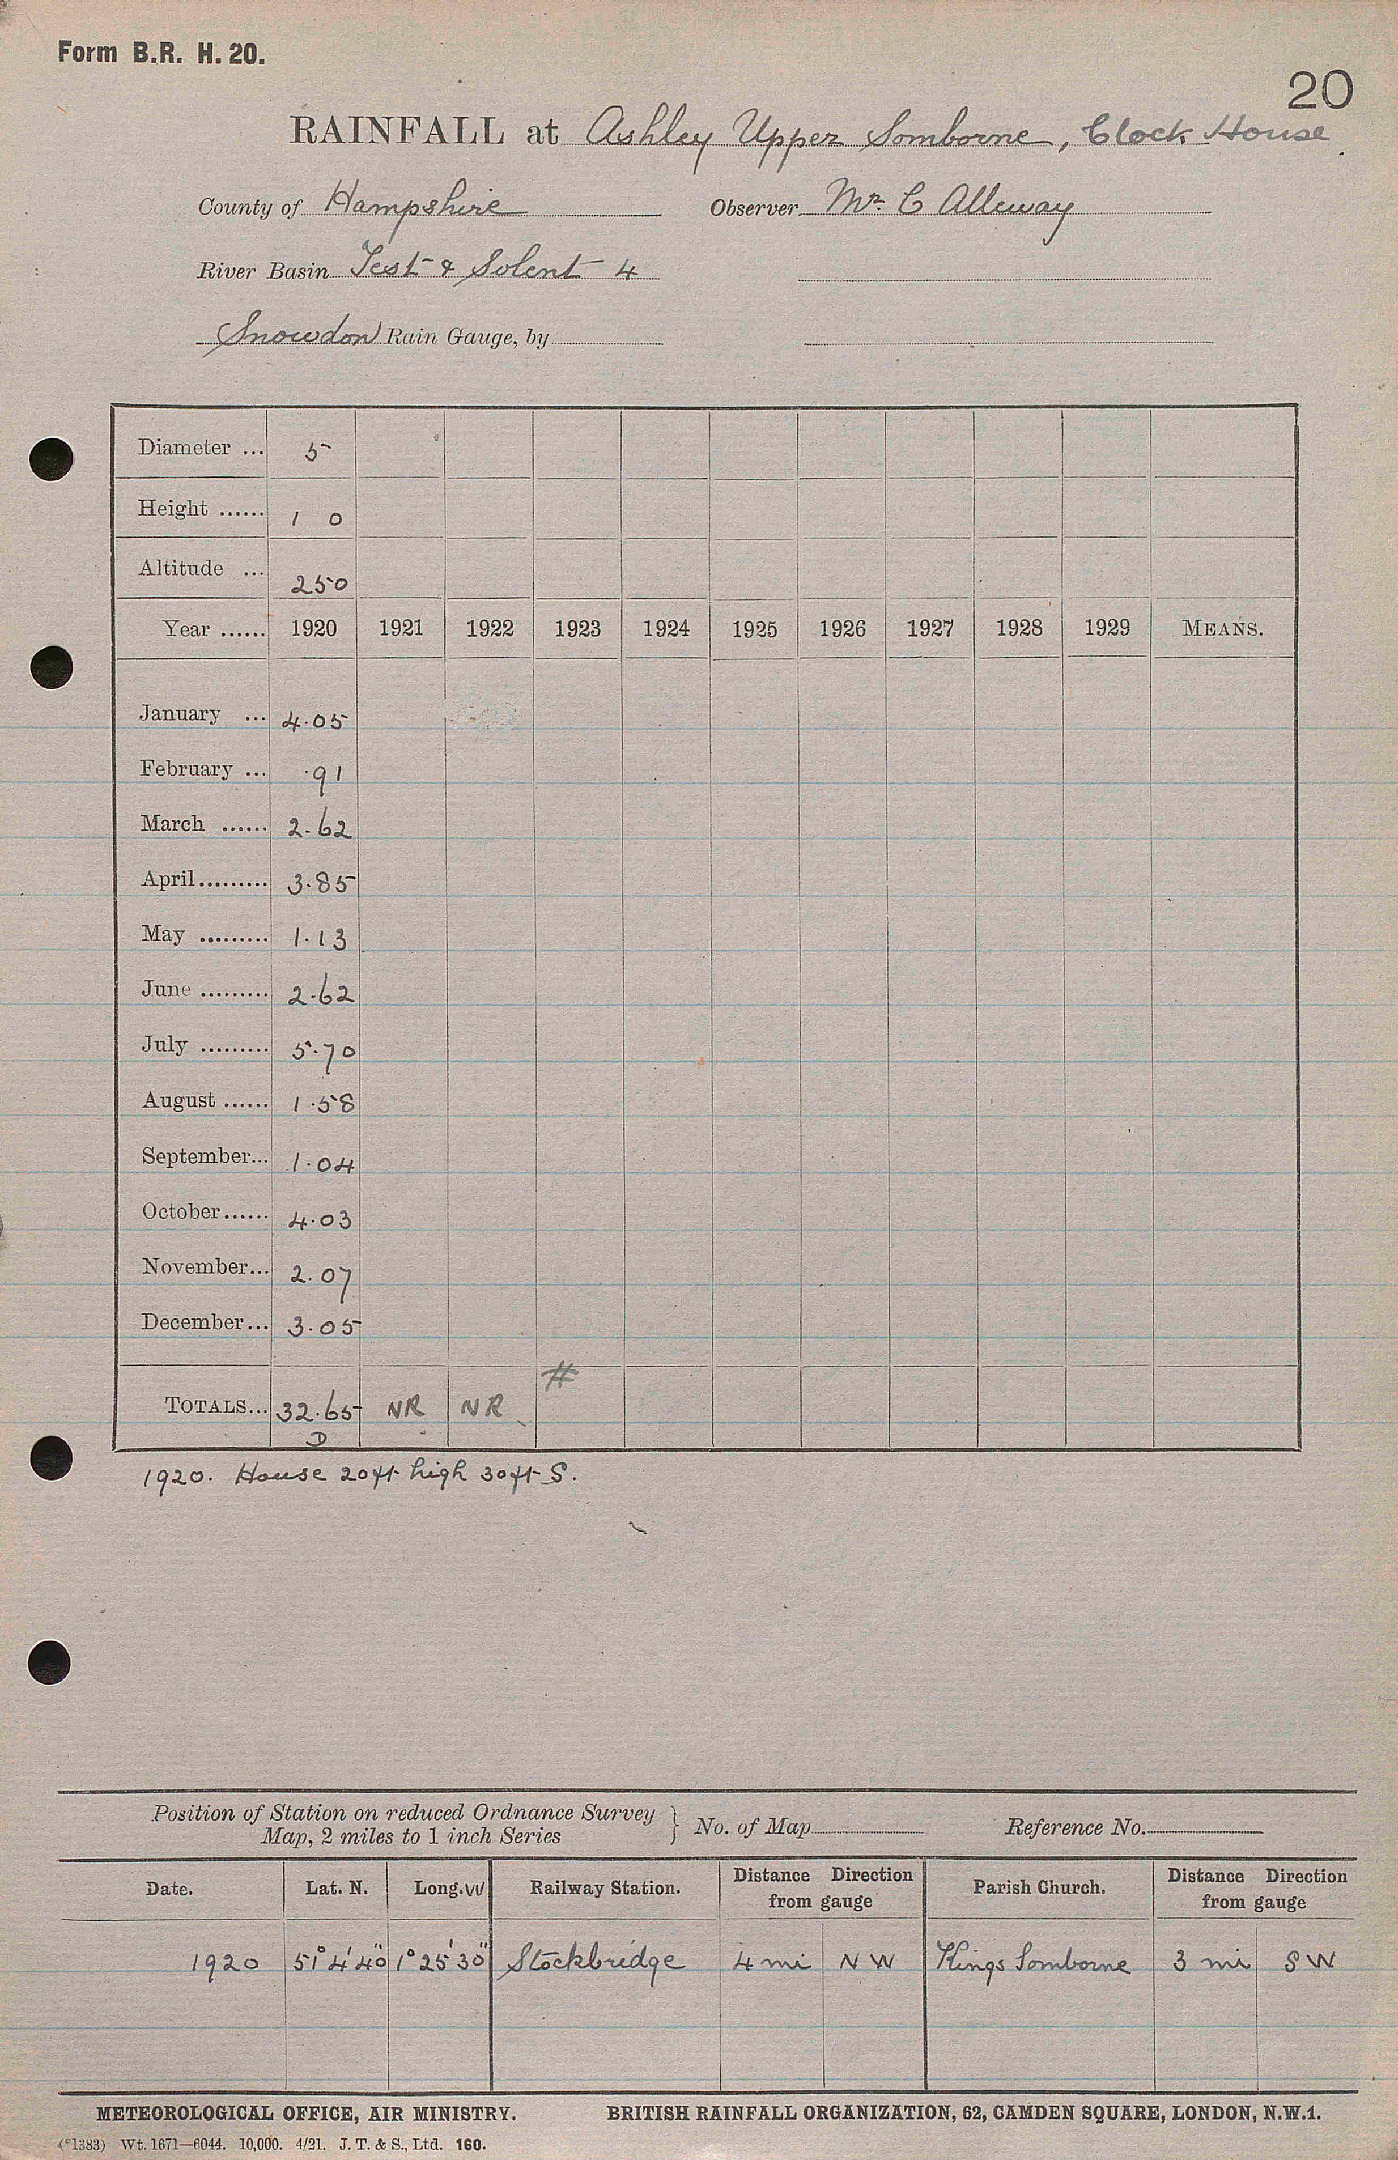 Form B.R. H. 20.
20
RAINFALL at Ashley Upper Somborne, Clock House
County of Hampshire Observer Mr. C Alleway
River Basin Test & Solent 4
Snowdon Rain Gauge, by
Diameter ... 5
Height ...... 1 0
Altitude ... 250
Year ...... 1920 1921 1922 1923 1924 1925 1926 1927 1928 1929 MEANS.
January ... 4.05
February ... .91
March ...... 2.62
April......... 3.85
May ......... 1.13
June ......... 2.62
July ......... 5.70
August ...... 1.58
September... 1.04
October...... 4.03
November... 2.07
December... 3.05
#
TOTALS... 32.65 NR NR
D
1920. House 20ft high 30ft S.
Position of Station on reduced Ordnance Survey } No. of Map Reference No.
Map, 2 miles to 1 inch Series
Date. Lat. N. Long. W Railway Station. Distance Direction from gauge Parish Church. Distance Direction from gauge
1920 51° 4' 40" 1° 25' 30" Stockbridge 4 mi N W Kings Somborne 3 mi S W
METEOROLOGICAL OFFICE, AIR MINISTRY. BRITISH RAINFALL ORGANIZATION, 62, CAMDEN SQUARE, LONDON, N.W.1.
(*1383) Wt. 1671—6044. 10,000. 4/21. J. T. & S., Ltd. 160.